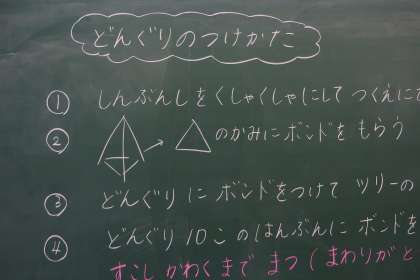 どんぐりのつけかた
① しんぶんしをくしゃくしゃにして つくえに
② → のかみにボンドを もらう
③ どんぐり に ボンドをつけて ツリーの
④ どんぐり 10こ のはんぶんに ボンドを
すこし かわく まで まつ ( まわりが と